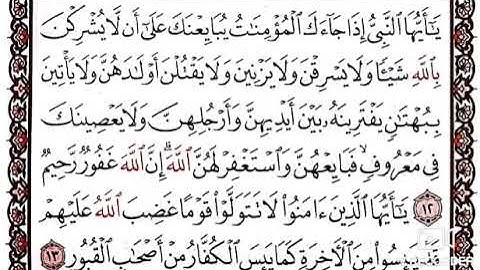 يَٰٓأَيُّهَا ٱلنَّبِىُّ إِذَا جَآءَكَ ٱلْمُؤْمِنَٰتُ يُبَايِعْنَكَ عَلَىٰٓ أَن لَّا يُشْرِكْنَ
بِٱللَّهِ شَيْـًٔا وَلَا يَسْرِقْنَ وَلَا يَزْنِينَ وَلَا يَقْتُلْنَ أَوْلَٰدَهُنَّ وَلَا يَأْتِينَ
بِبُهْتَٰنٍ يَفْتَرِينَهُۥ بَيْنَ أَيْدِيهِنَّ وَأَرْجُلِهِنَّ وَلَا يَعْصِينَكَ
فِى مَعْرُوفٍ فَبَايِعْهُنَّ وَٱسْتَغْفِرْ لَهُنَّ ٱللَّهَ إِنَّ ٱللَّهَ غَفُورٌ رَّحِيمٌ
١٢ يَٰٓأَيُّهَا ٱلَّذِينَ ءَامَنُوا۟ لَا تَتَوَلَّوْا۟ قَوْمًا غَضِبَ ٱللَّهُ عَلَيْهِمْ
يَئِسُوا۟ مِنَ ٱلْءَاخِرَةِ كَمَا يَئِسَ ٱلْكُفَّارُ مِنْ أَصْحَٰبِ ٱلْقُبُورِ ١٣